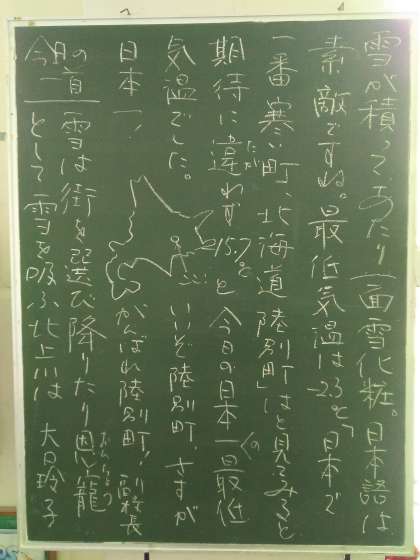 雪が積って、あたり一面雪化粧。日本語は
素敵ですね。最低気温は-2.3℃「日本で
一番寒い町、北海道陸別町」はと見てみると
期待に違わず-15.7℃と今日の日本一の最低
たが
気温でした。いいぞ陸別町、さすが
日本一!がんばれ陸別町!!副校長
今日の一首
雪は街を選び降りたり恩寵
おんちょう
として雪を吸ふ北上川は 大口玲子